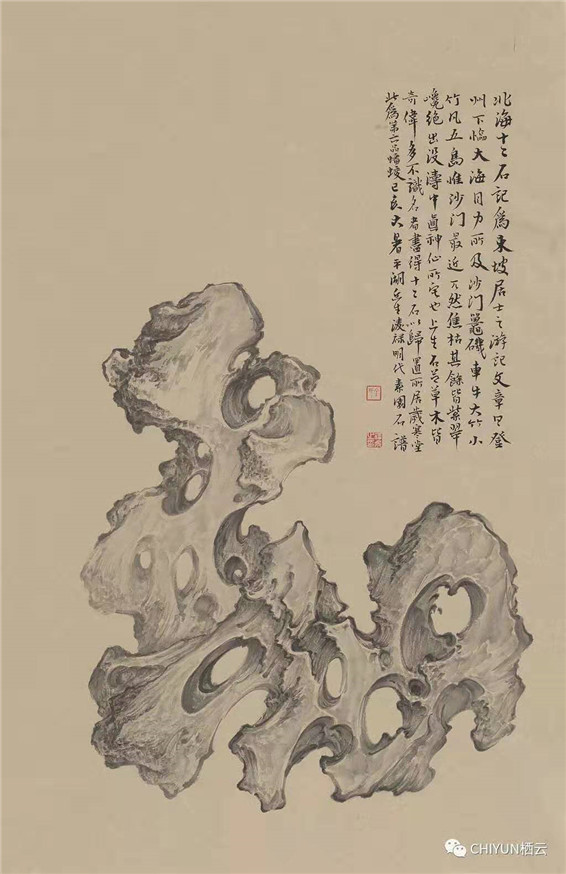 北海十二石記為東坡居士之游記文章曰登
州下臨大海目力所及沙門鼉磯車牛大竹小
竹凡五島惟沙門最近兀然焦枯其餘皆紫翠
巉絕出沒濤中真神仙所宅也上生石芝草木皆
奇偉多不識名者 得十二石以歸置所居歲寒堂
此為第 品蟠 己亥大暑平湖 生 明代素園石譜
CHIYUN栖云